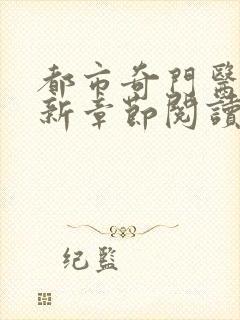 都市奇門醫
新章節閱讀
纪监